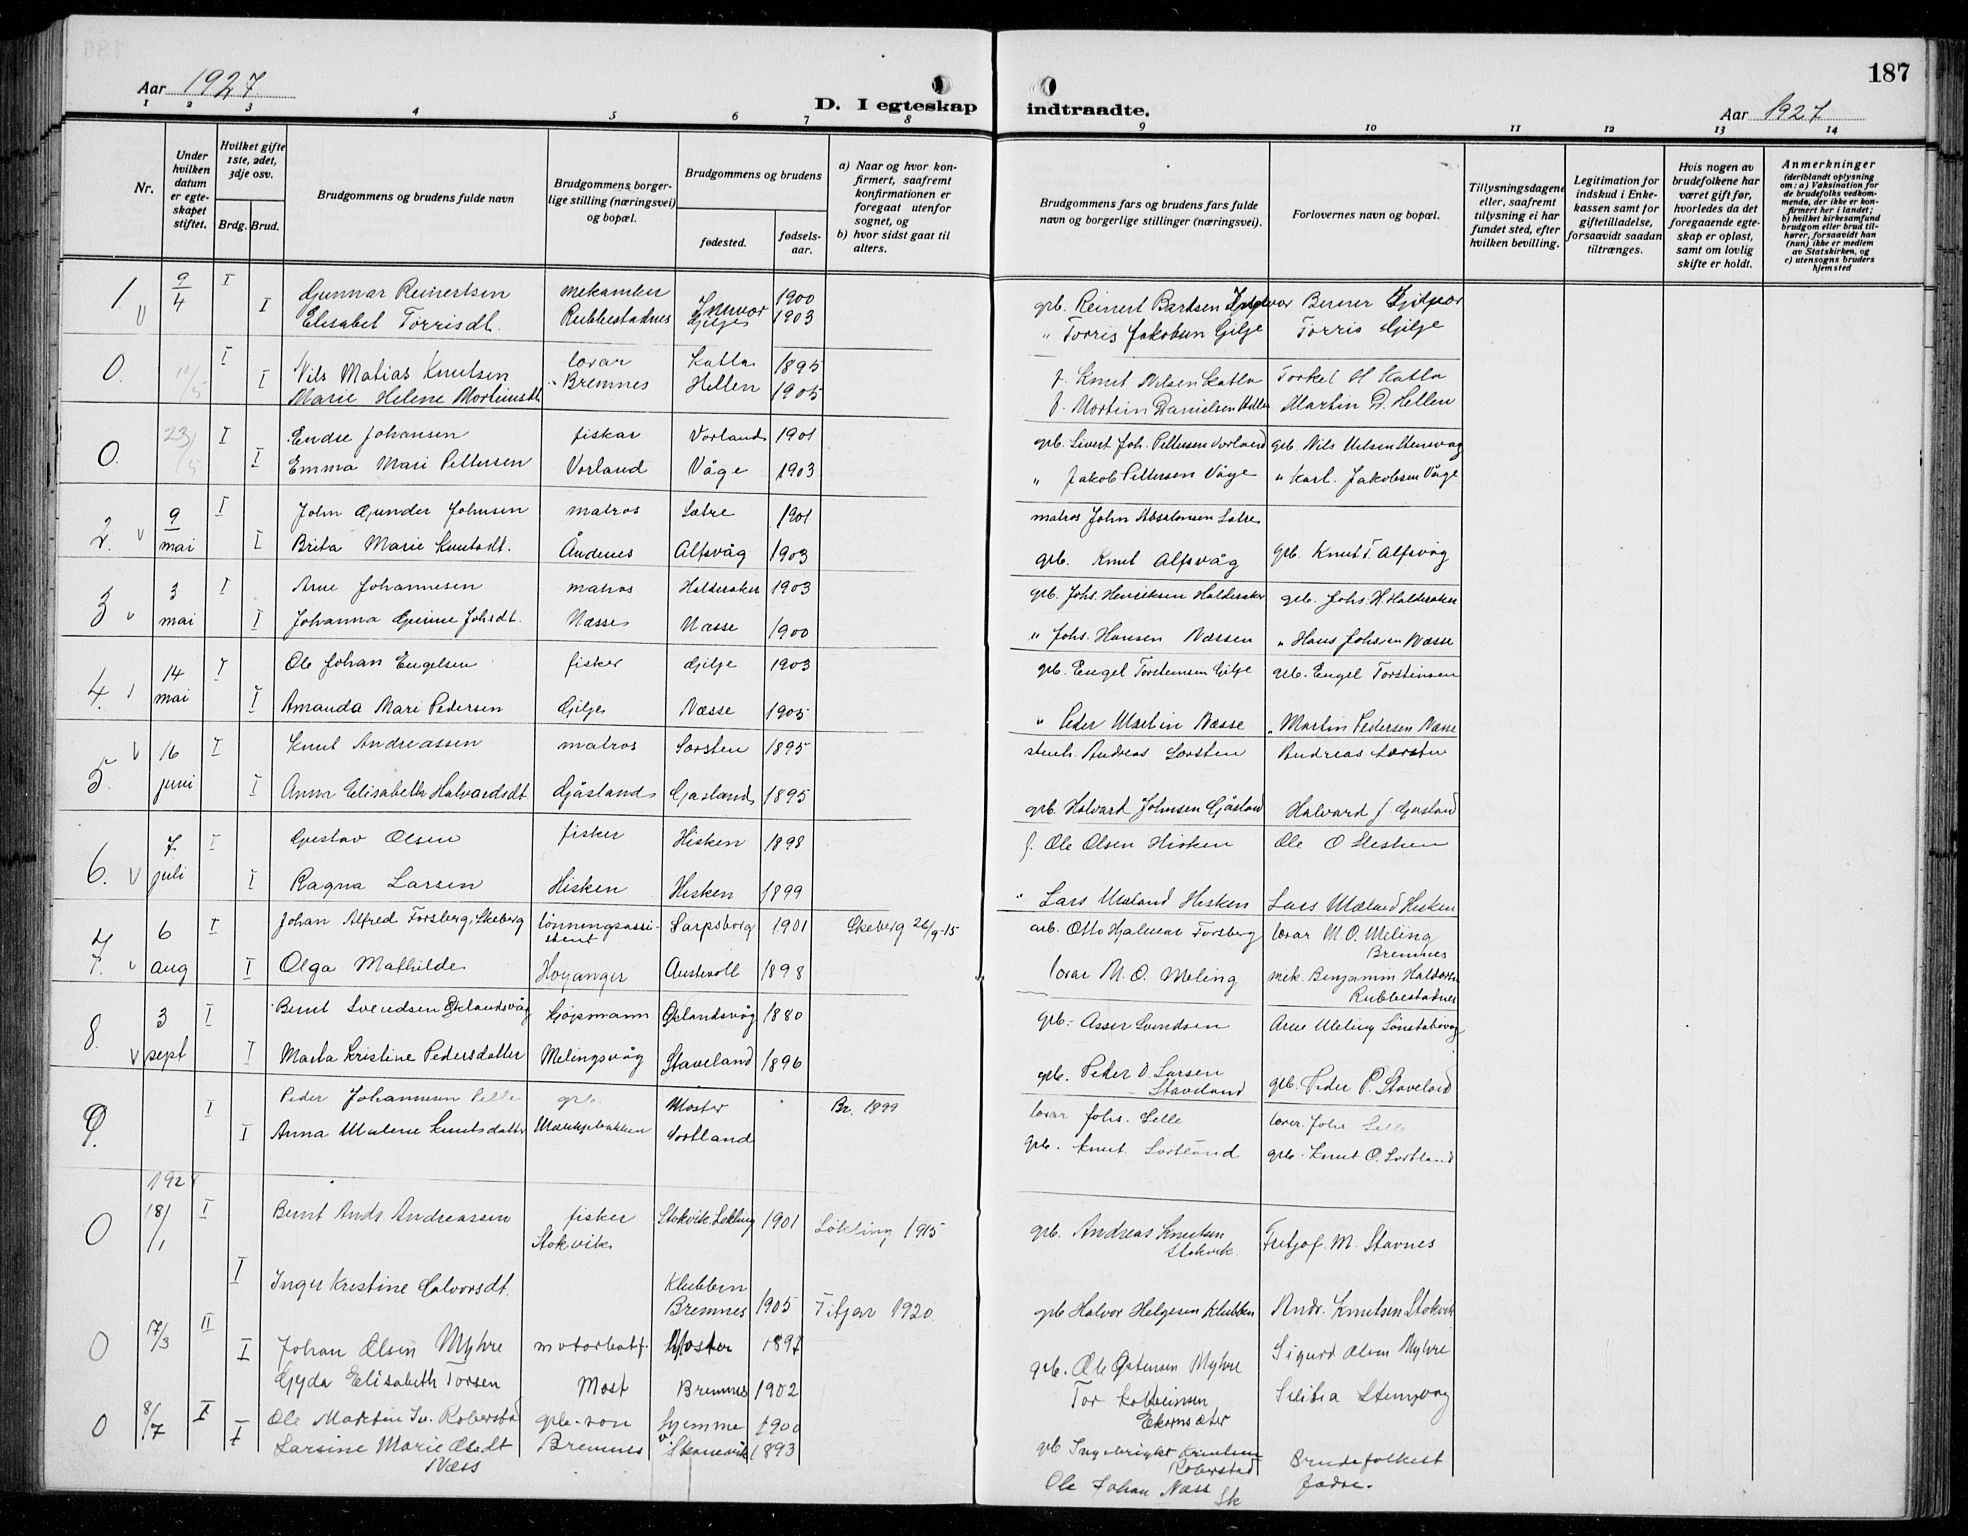 187
Aar 1927
D. I egteskap indtraadte.
Aar 1927
1 2 3 4 5 6 7 8 9 10 11 12 13 14
Nr.
Under hvilken datum er egteskapet stiftet.
Hvilket gifte 1ste, 2det, 3dje osv.
Brdg. Brud.
Brudgommens og brudens fulde navn
Brudgommens borgerlige stilling (næringsvei) og bopæl.
Brudgommens og brudens
fødested.
fødselsaar.
a) Naar og hvor konfirmert, saafremt konfirmationen er foregaat utenfor sognet, og
b) hvor sidst gaat til alters.
Brudgommens fars og brudens fars fulde navn og borgerlige stillinger (næringsvei).
Forlovernes navn og bopæl.
Tillysningsdagene eller, saafremt tillysning ei har fundet sted, efter hvilken bevilling.
Legitimation for indskud i Enkekassen samt for giftetilladelse, forsaavidt saadan tiltrænges.
Hvis nogen av brudefolkene har været gift før, hvorledes da det foregaaende egteskap er opløst, samt om lovlig skifte er holdt.
Anmerkninger (deriblandt oplysning om: a) Vaksination for de brudefolks vedkommende, der ikke er konfirmert her i landet; b) hvilket kirkesamfund brudgom eller brud tilhører, forsaavidt han (hun) ikke er medlem av Statskirken, og c) utensogns bruders hjemsted
1 9/4 I Gunnar Reinertsen mekaniker 1900 grb. Reinert Bartsen Berner
I Elisabet Torrisdt. Rubbestadnes Gilje 1903 " Torris Jakobsen Gilje Torris Gilje
0. 11/5 I Nils Matias Knutsen lærar Katla 1895 f. Knut Nilsen Katla Torkel H Katla
I Marie Helene Mortinsdt Bremnes Hellen 1905 f. Mortin Danielsen Martin D. Hellen
0. 23/5 I Endse Johansen fiskar Vorland 1901 grb. Sivert Joh. Pettersen Vorland grb. Nils Nilsen Stensvag
I Emma Mari Pettersen Vorland Våge 1903 " Jakob Pettersen Våge " Karl. Jakobsen Våge
2. v 9 mai I John Gunder Johnsen matros Sætre 1901 matros John Absalonsen Sætre
I Brita Marie Knutsdt. Åndenes Alfsvåg 1903 grb. Knut Alfsvåg grb. Knut T. Alfsvåg
3 v 3 mai I Arne Johannesen matros Halderaker 1903 grb. Johs. Henriksen Halderaker grb. Johs. H. Halderaker
I Johanna Gurine Johsdt. Næsse Næsse 1900 " Johs. Hansen Næssen " Hans Johsen Næsse
4. 14 mai I Ole Johan Engelsen fisker Gilje 1903 grb. Engel Torsteinsen Gilje grb. Engel Torstinsen
I Amanda Mari Pedersen Gilje Næsse 1905 " Peder Martin Næsse " Martin Pedersen Næsse
5. v 16 juni I Knut Andreassen matros Sorsten 1895 Andreas Sorsten Andreas Sorsten
I Anna Elisabeth Halvardsdt Gåsland Gasland 1895 grb. Halvard Johnsen Gåsland Halvard J. Gasland
6. v 7. juli I Gustav Olsen fisker Hisken 1898 f. Ole Olsen Hisken Ole O Hisken
I Ragna Larsen Hisken Hisken 1899 " Lars Mæland Hisken Lars Mæland Hisken
7. v 6 aug I Johan Alfred Forsberg, Skeberg lønningsassistent Sarpsborg 1901 Skeberg 26/9-15 arb. Otto Hjalmar Forsberg lærar M. O. Meling Bremnes
I Olga Mathilde Høyanger Austevoll 1898 lærar M. O. Meling mek. Benjamin Haldorsen Rubbestadnes
8. v 3 sept I Bernt Svendsen Øklandsvåg Kjøpmann Øklandsvåg 1880 grb. Asser Svendsen Arne Meling
I Marta Kristine Pedersdatter Melingsvåg Staveland 1896 grb. Peder O. Larsen Staveland grb. Peder P. Staveland
9. I Peder Johannesen Lelle grb. Moster Br. 1899 lærar Johs. Lelle lærer Johs Lelle
I Anna Malene Knutsdatter Sortland grb. Knut Sortland grb. Knut O. Sortland
1928
0 18/1 I Bernt Andr Andreassen fisker Stokvik Stokvik Løkling 1901 Løkling 1915 grb. Andreas Knutsen Stokvik Fritjof. M. Stavnes
I Inger Kristine Halvorsdt. Klubben Bremnes 1905 Fitjar 1920. grb Halvor Helgesen Klubben Andr. Knutsen Stokvik
0 17/3 II Johan Olsen Myhre motorbåtf. Moster 1897 grb. Ole Østensen Myhre Sigurd Olsen Myhre
I Gyda Elisabeth Torsen Most Bremnes 1902 Tor Ekornsæter
0 8/7 I Ole Martin In. Roberstad grb.-son 1900 grb Ingebrigt Knutsen Roberstad Brudefolkest fædre.
I Larsine Marie Olsdt Næss Bremnes Skanevik 1893 Ole Johan Næss Sk